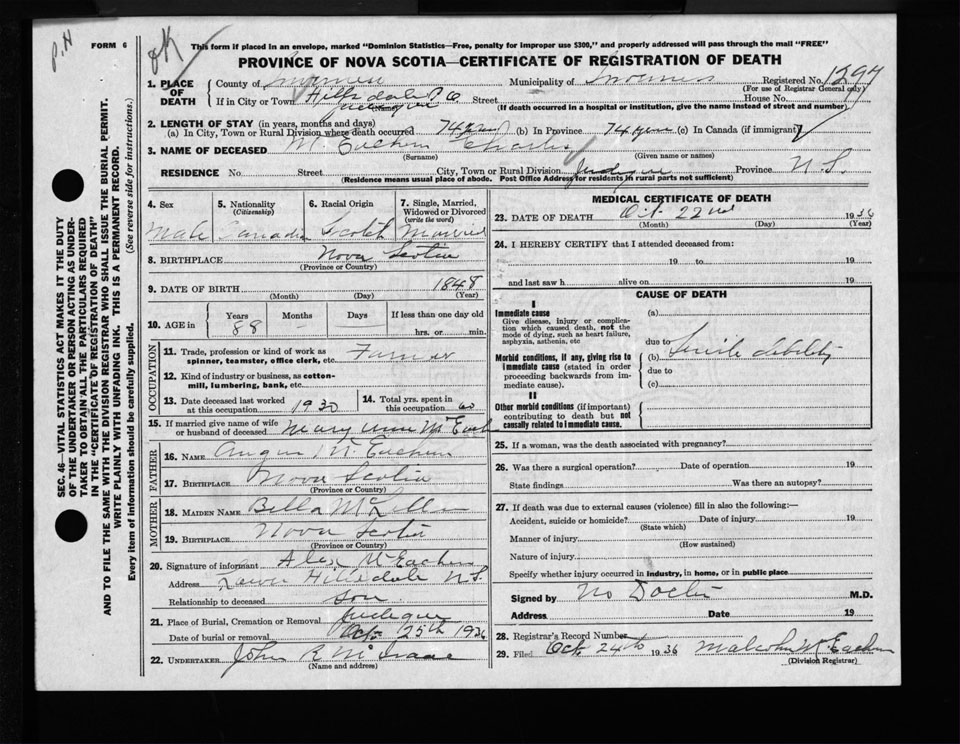 P.H
FORM 6
OK
This form if placed in an envelope, marked "Dominion Statistics—Free, penalty for improper use $300," and properly addressed will pass through the mail "FREE"
PROVINCE OF NOVA SCOTIA—CERTIFICATE OF REGISTRATION OF DEATH
SEC. 46—VITAL STATISTICS ACT MAKES IT THE DUTY
OF THE UNDERTAKER OR PERSON ACTING AS UNDER-
TAKER TO OBTAIN ALL THE PARTICULARS REQUIRED
IN THE "CERTIFICATE OF REGISTRATION OF DEATH"
AND TO FILE THE SAME WITH THE DIVISION REGISTRAR WHO SHALL ISSUE THE BURIAL PERMIT.
WRITE PLAINLY WITH UNFADING INK. THIS IS A PERMANENT RECORD.
Every item of information should be carefully supplied. (See reverse side for instructions.)
1. PLACE OF DEATH
County of Inverness Municipality of Inverness Registered No. 1294
(For use of Registrar General only)
If in City or Town Hillsdale P.O. Street House No.
(Name)
(If death occurred in a hospital or institution, give the name instead of street and number)
2. LENGTH OF STAY (in years, months and days)
(a) In City, Town or Rural Division where death occurred 74 years (b) In Province 74 years (c) In Canada (if immigrant)
3. NAME OF DECEASED McEachern Charles
(Surname) (Given name or names)
RESIDENCE No. Street City, Town or Rural Division Judique Province N.S.
(Residence means usual place of abode. Post Office Address for residents in rural parts not sufficient)
4. Sex
5. Nationality (Citizenship)
6. Racial Origin
7. Single, Married, Widowed or Divorced (write the word)
Male Canadian Scotch Married
8. BIRTHPLACE Nova Scotia
(Province or Country)
9. DATE OF BIRTH 1848
(Month) (Day) (Year)
10. AGE in Years Months Days If less than one day old
88 - - hrs. or min.
OCCUPATION
11. Trade, profession or kind of work as spinner, teamster, office clerk, etc. Farmer
12. Kind of industry or business, as cotton-mill, lumbering, bank, etc.
13. Date deceased last worked at this occupation 1930
14. Total yrs. spent in this occupation 60
15. If married give name of wife or husband of deceased Mary Ann McEachern
FATHER
16. NAME Angus McEachern
17. BIRTHPLACE Nova Scotia
(Province or Country)
MOTHER
18. MAIDEN NAME Bella McLellan
19. BIRTHPLACE Nova Scotia
(Province or Country)
20. Signature of informant Alex McEachern
Address Lower Hillsdale N.S.
Relationship to deceased son
21. Place of Burial, Cremation or Removal Judique
Date of burial or removal Oct. 25th 1936
22. UNDERTAKER John R McIsaac
(Name and address)
MEDICAL CERTIFICATE OF DEATH
23. DATE OF DEATH Oct. 22nd 1936
(Month) (Day) (Year)
24. I HEREBY CERTIFY that I attended deceased from:
19 to 19
and last saw h alive on 19
CAUSE OF DEATH
I
Immediate cause
Give disease, injury or complication which caused death, not the mode of dying, such as heart failure, asphyxia, asthenia, etc
(a)
due to
Morbid conditions, if any, giving rise to immediate cause (stated in order proceeding backwards from immediate cause).
(b) Senile debility
due to
(c)
II
Other morbid conditions (if important) contributing to death but not causally related to immediate cause.
25. If a woman, was the death associated with pregnancy?
26. Was there a surgical operation? Date of operation 19
State findings Was there an autopsy?
27. If death was due to external causes (violence) fill in also the following:—
Accident, suicide or homicide? Date of injury 19
(State which)
Manner of injury
(How sustained)
Nature of injury
Specify whether injury occurred in industry, in home, or in public place
Signed by No Doctor M.D.
Address Date 19
28. Registrar's Record Number
29. Filed Oct. 24th 1936 Malcolm McEachern
(Division Registrar)